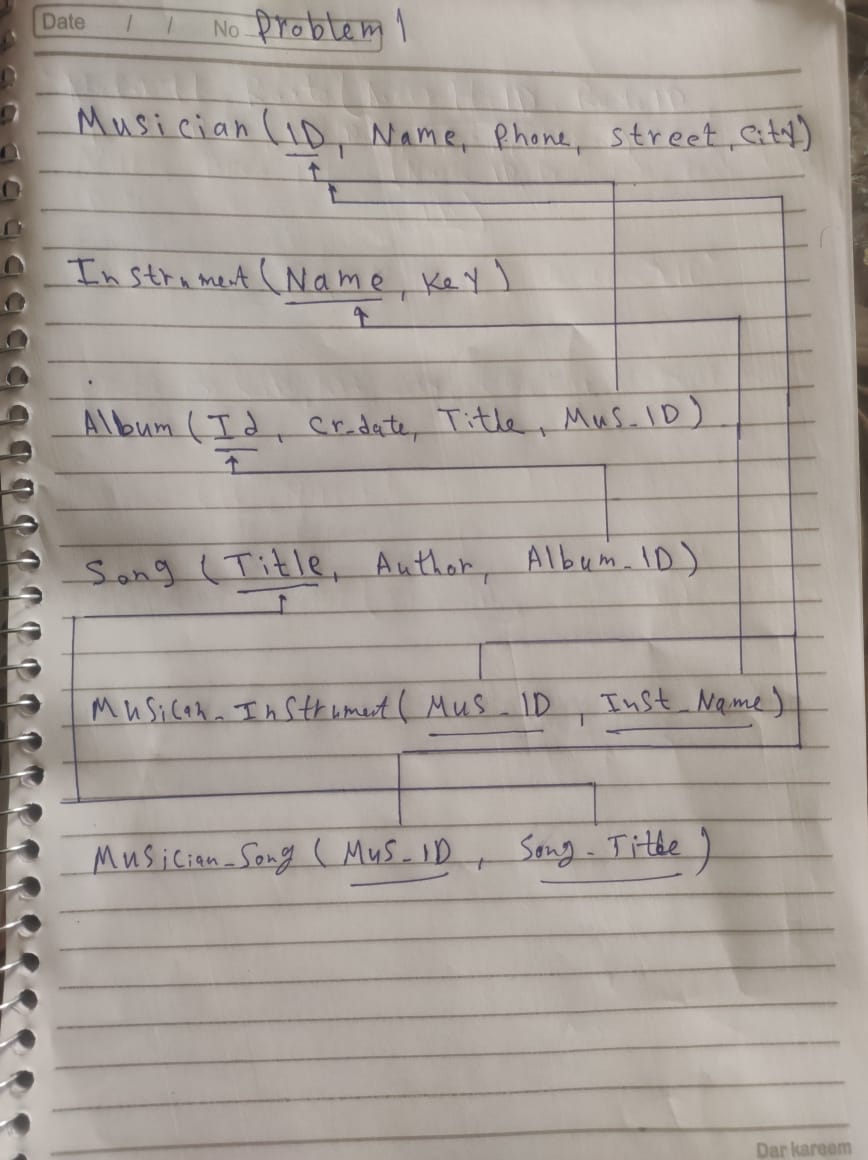 Date / / No Problem 1
Musician (ID, Name, Phone, Street, City)
Instrument (Name, Key)
Album (Id, Cr_date, Title, Mus_ID)
Song (Title, Author, Album_ID)
Musican_Instrument (Mus_ID, Inst_Name)
Musician_Song (Mus_ID, Song_Title)
Dar kareem